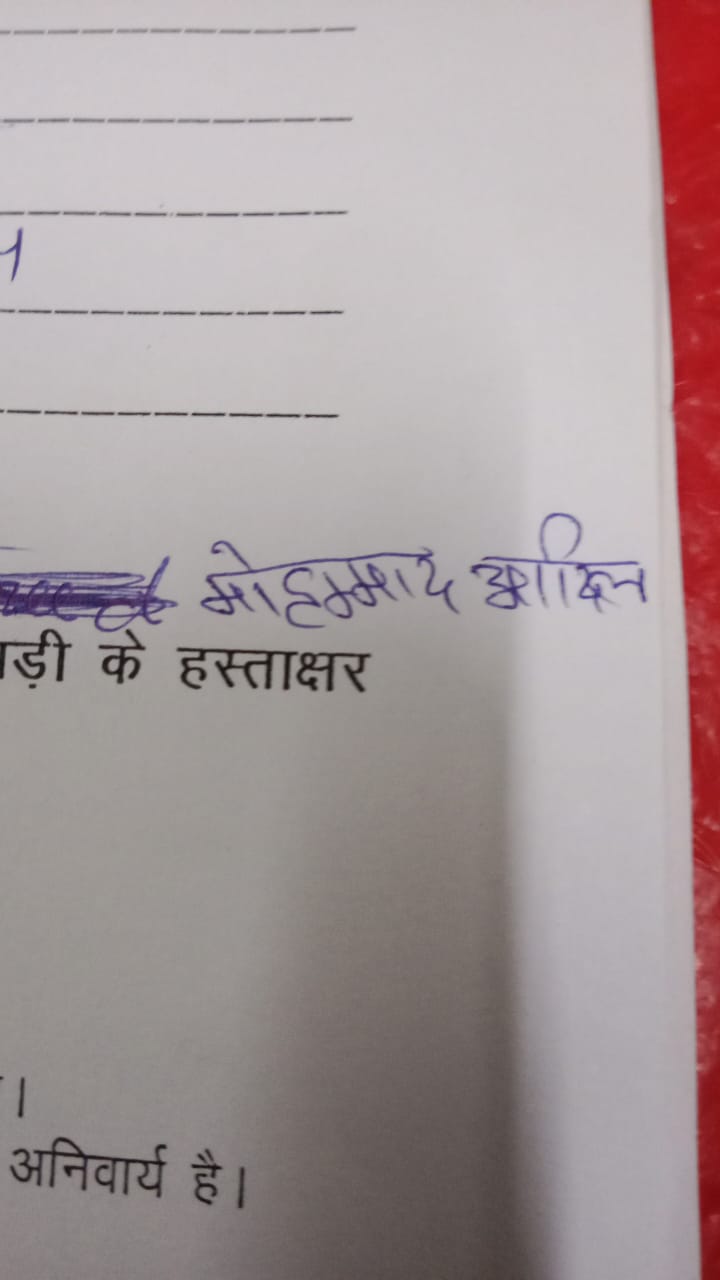 मोहम्माद आदिल
ाड़ी के हस्ताक्षर
।
अनिवार्य है।